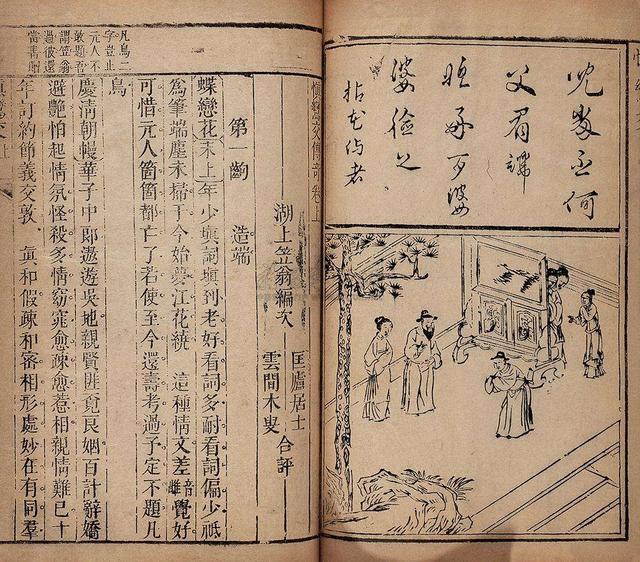 拈花侍者
慎鸞交傳奇卷上
湖上笠翁編次
匡廬居士
雲間木叟
合評
第一齣 造端
蝶戀花末上年少塡詞塡到老好看詞多耐看詞偏少祗
爲筆端塵未掃于今始夢江花繞 這種情文差雌音覺好
可惜元人箇箇都亡了若使至今還壽考過予定不題凡
鳥
慶清朝慢華子中郞遨遊吳地親賢匪覓良姻百計辭嬌
避艷怕起情氛怪殺多情窈窕愈疎愈惹相親情難已十
年訂約節義交敦 眞和假疎和密相形處妙在有同羣
凡鳥二
字豈止
元人不
敢題吾
謂笠翁
過彼還